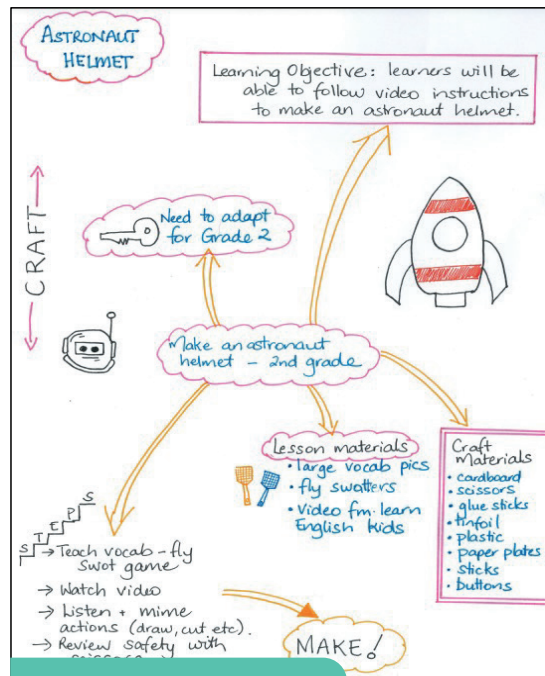 ASTRONAUT
HELMET
Learning Objective: learners will be
able to follow video instructions
to make an astronaut helmet.
CRAFT
Need to adapt
for Grade 2
Make an astronaut
helmet – 2nd grade
Lesson materials
• large vocab pics
• fly swatters
• Video fm. learn
English kids
Craft
Materials
• cardboard
• scissors
• glue sticks
• tinfoil
• plastic
• paper plates
• sticks
• buttons
STEPS
→ Teach vocab – fly
swot game
→ Watch video
→ Listen + mime
actions (draw, cut etc).
→ Review safety with
MAKE!